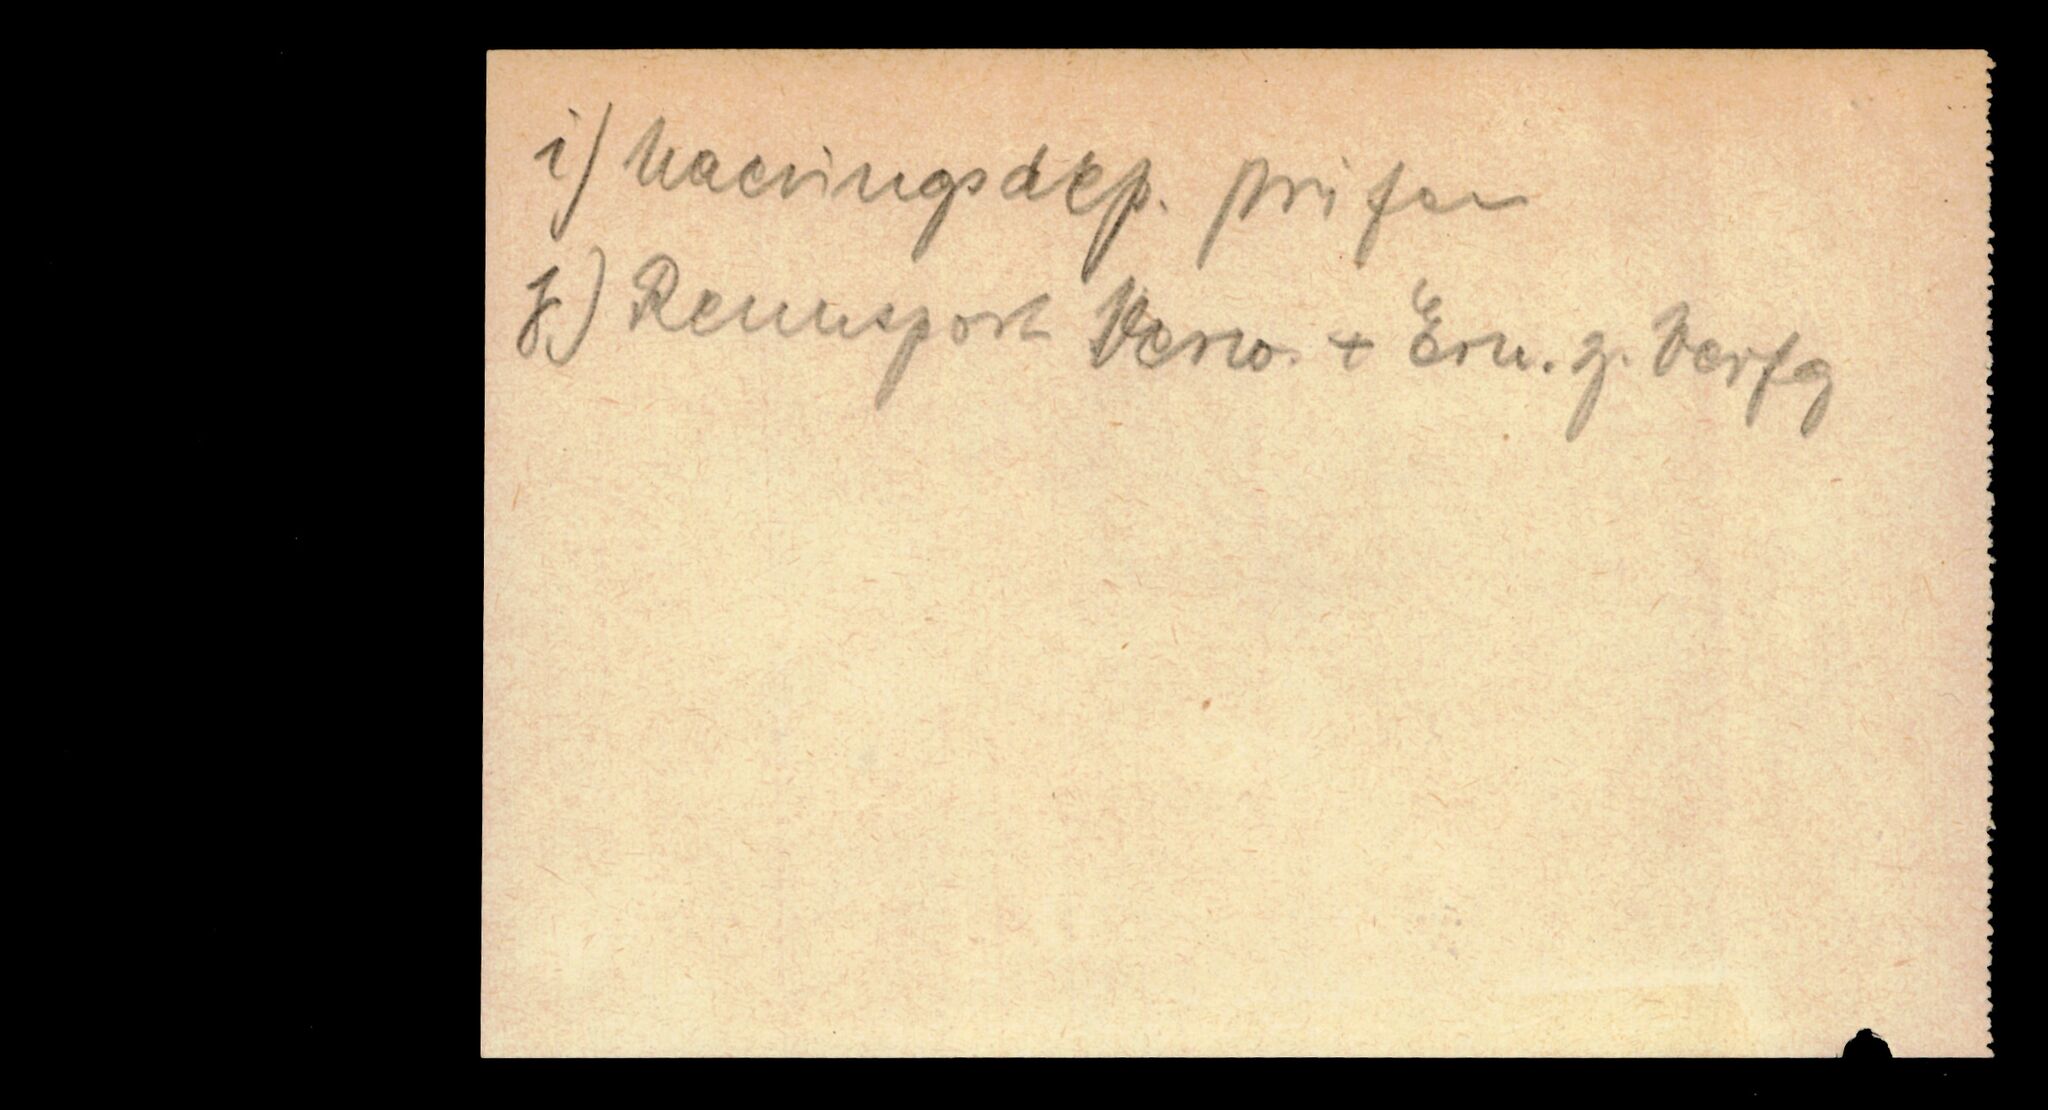 i) Naeringsdep. prüfen
j) Rennsport Verw. + Ern. g. Verfg